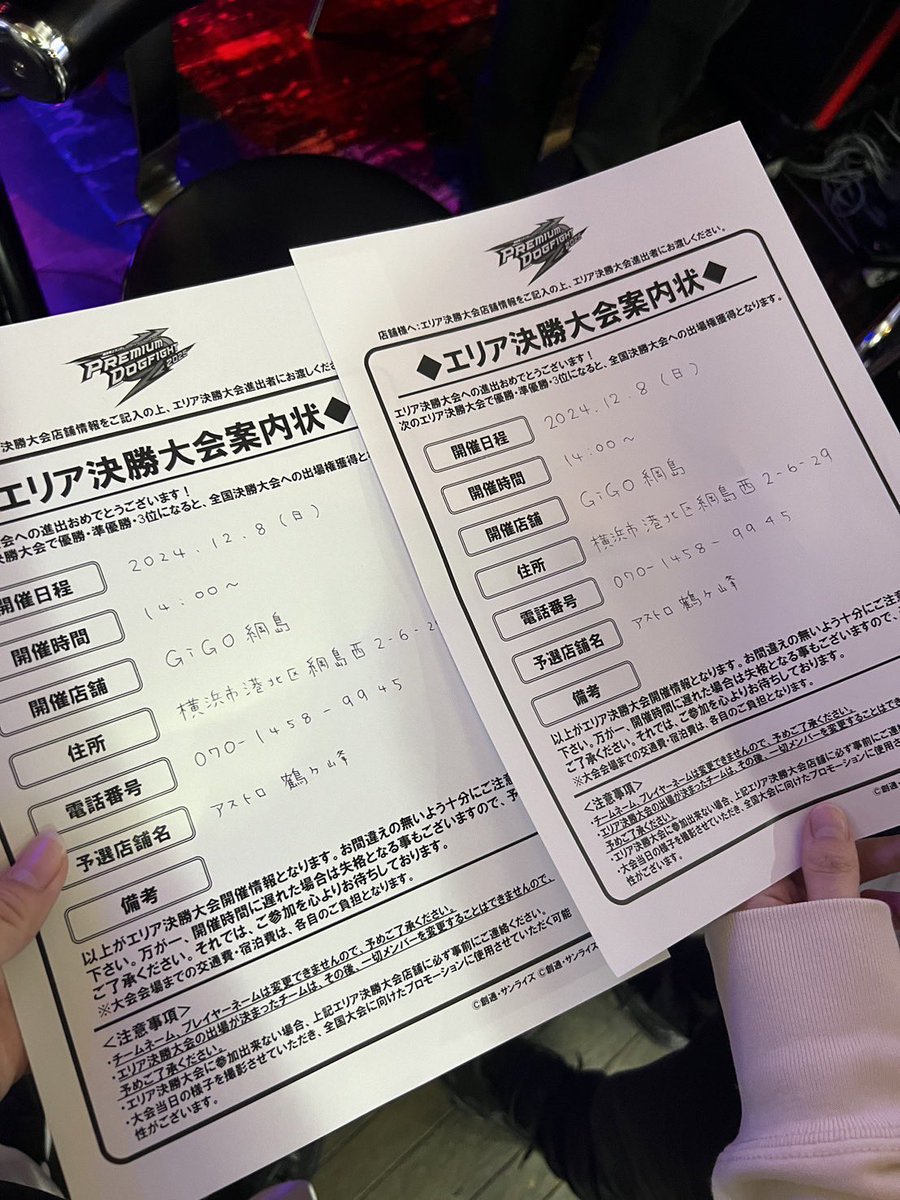 PREMIUM
DOGFIGHT
2025
決勝大会店舗情報をご記入の上、エリア決勝大会進出者にお渡しくださ
エリア決勝大会案内状◆
会への進出おめでとうございます!
決勝大会で優勝・準優勝・3位になると、全国決勝大会への出場権獲得と
開催日程
2024.12.8(日)
開催時間
14:00~
開催店舗
GiGO 綱島
住所
横浜市港北区綱島西2-6-2
電話番号
070-1458-9945
予選店舗名
アストロ 鶴ヶ峰
備考
以上がエリア決勝大会開催情報となります。お間違えの無いよう十分にご注意
下さい。万が一、開催時間に遅れた場合は失格となる事もございますので、予
ご了承ください。それでは、ご参加を心よりお待ちしております。
※大会会場までの交通費・宿泊費は、各自のご負担となります。
<注意事項>
・チームネーム、プレイヤーネームは変更できませんので、予めご了承ください。
・エリア決勝大会の出場が決まったチームは、その後、一切メンバーを変更することはできませんので、
予めご了承ください。
・エリア決勝大会に参加出来ない場合、上記エリア決勝大会店舗に必ず事前にご連絡ください。
・大会当日の様子を撮影させていただき、全国大会に向けたプロモーションに使用させていただく可能
性がございます。
©創通・サンライズ ©創通・サンライズ
PREMIUM
DOGFIGHT
2025
店舗様へ:エリア決勝大会店舗情報をご記入の上、エリア決勝大会進出者にお渡しください。
◆エリア決勝大会案内状◆
エリア決勝大会への進出おめでとうございます!
次のエリア決勝大会で優勝・準優勝・3位になると、全国決勝大会への出場権獲得となります。
開催日程
2024.12.8(日)
開催時間
14:00~
開催店舗
GiGO 綱島
住所
横浜市港北区綱島西2-6-29
電話番号
070-1458-9945
予選店舗名
アストロ 鶴ヶ峰
備考
以上がエリア決勝大会開催情報となります。お間違えの無いよう十分にご注意
下さい。万が一、開催時間に遅れた場合は失格となる事もございますので、
ご了承ください。それでは、ご参加を心よりお待ちしております。
※大会会場までの交通費・宿泊費は、各自のご負担となります。
<注意事項>
・チームネーム、プレイヤーネームは変更できませんので、予めご了承ください。
・エリア決勝大会の出場が決まったチームは、その後、一切メンバーを変更することはでき
予めご了承ください。
・エリア決勝大会に参加出来ない場合、上記エリア決勝大会店舗に必ず事前にご連絡
・大会当日の様子を撮影させていただき、全国大会に向けたプロモーションに使用さ
性がございます。
©創通